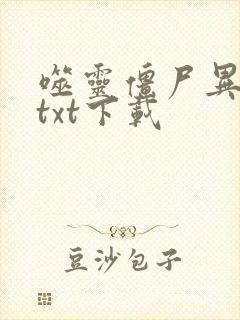 噬靈僵尸異
txt下載
豆沙包子